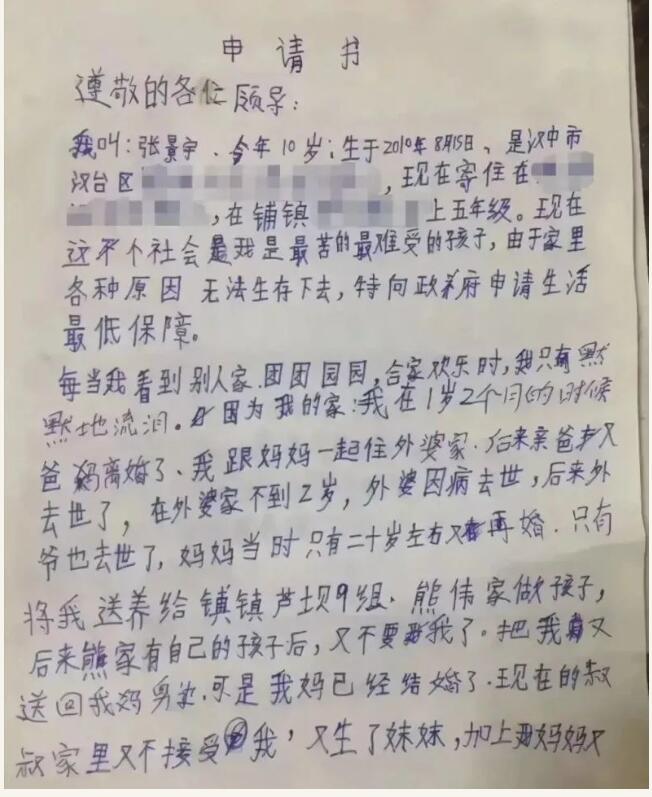 申请书
遵敬的各位顾导：
我叫：张景宇．今年10岁；生于2010年8月15日、是汉中市
汉台区，现在寄住在
，在铺镇上五年级。现在
这个社会我是最苦的最难受的孩子，由于家里
各种原因无法生存下去，特向政府申请生活
最低保障。
每当我看到别人家．团团园园，合家欢乐时，我只有默
默地流泪。因为我的家：我在1岁2个月的时候
爸妈离婚了、我跟妈妈一起住外婆家．后来亲爸又
去世了，在外婆家不到2岁，外婆因病去世，后来外
爷也去世了，妈妈当时只有二十岁左右又再婚．只有
将我送养给镇芦坝9组．熊伟家做孩子，
后来熊家有自己的孩子后，又不要我了。把我又
送回我妈身边．可是我妈已经结婚了．现在的叔
叔家里又不接受我，又生了妹妹，加上我妈妈又